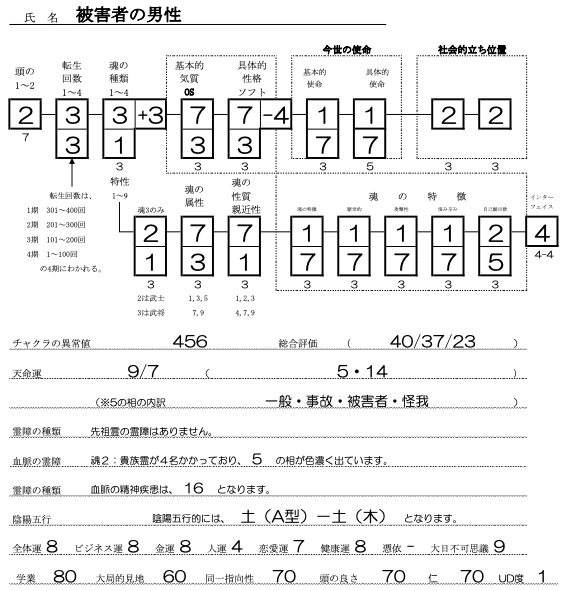 氏 名 被害者の男性
今世の使命 社会的立ち位置
頭の 転生 魂の 基本的 具体的 基本的 具体的
1～2 回数 種類 気質 性格 使命 使命
1～4 1～4 OS ソフト
2 3 3 +3 7 7 -4 1 1 2 2
7 3 1 3 3 7 7
3 3 3 3 5 3 3
転生回数は、 特性 魂の 魂の 魂 の 特 徴 インター
1期 301～400回 1～9 魂3のみ 属性 性質 フェイス
2期 201～300回 親近性
3期 101～200回 2 7 7 1 1 1 1 2 4
4期 1～100回 1 3 1 7 7 7 7 5 4-4
の4期にわかれる。 3 3 3 3 3 3 3 3
2は武士 1,3,5 1,2,3
3は武将 7,9 4,7,9
チャクラの異常値 456 総合評価 （ 40/37/23 ）
天命運 9/7 （ 5・14 ）
（※5の相の内訳 一般・事故・被害者・怪我 ）
霊障の種類 先祖霊の霊障はありません。
血脈の霊障 魂2：貴族霊が4名かかっており、 5 の相が色濃く出ています。
霊障の種類 血脈の精神疾患は、 16 となります。
陰陽五行 陰陽五行的には、 土（A型）－土（木） となります。
全体運 8 ビジネス運 8 金運 8 人運 4 恋愛運 7 健康運 8 憑依 － 大日不可思議 9
学業 80 大局的見地 60 同一指向性 70 頭の良さ 70 仁 70 UD度 1